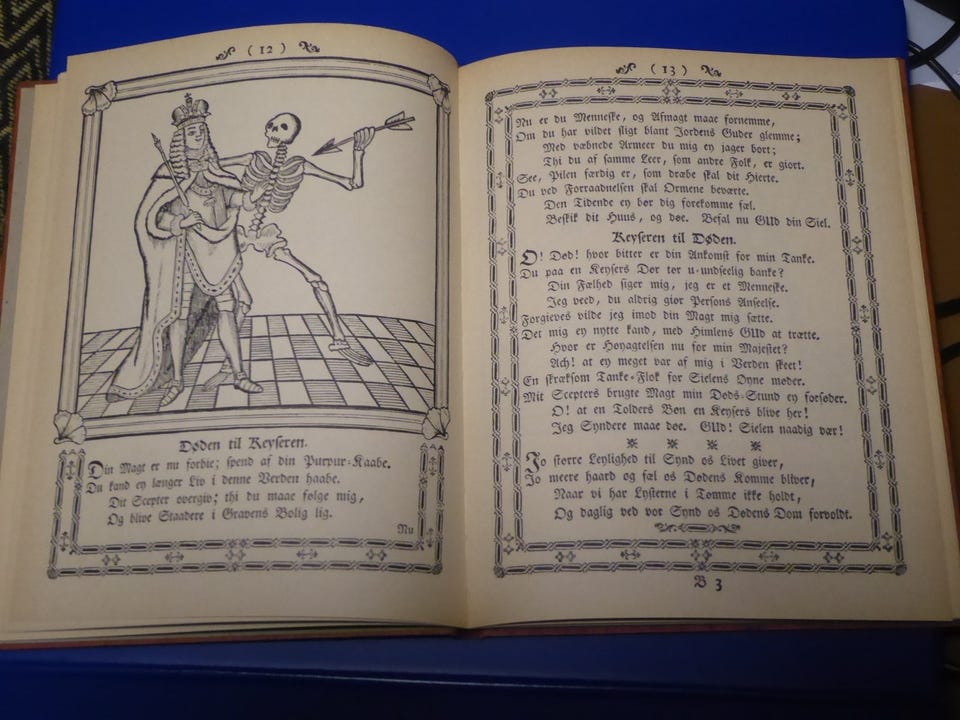 ( 12 )
Døden til Keyseren.
Din Magt er nu forbie; spend af din Purpur-Kaabe.
Du kand ey længer Liv i denne Verden haabe.
Dit Scepter overgiv; thi du maae følge mig,
Og blive Staadere i Gravens Bolig lig.
Nu
( 13 )
Nu er du Menneske, og Afmagt maae fornemme,
Om du har vildet sligt blant Jordens Guder glemme;
Med væbnede Armeer du mig ey jager bort;
Thi du af samme Leer, som andre Folk, er giort.
See, Pilen færdig er, som dræbe skal dit Hierte.
Du ved Forraadnelsen skal Ormene beværte.
Den Tidende ey bør dig forekomme fæl.
Beskik dit Huus, og døe. Befal nu GUd din Siel.
Keyseren til Døden.
O! Død! hvor bitter er din Ankomst for min Tanke.
Du paa en Keysers Dør tør u-undseelig banke?
Din Fælhed siger mig, jeg er et Menneske.
Jeg veed, du aldrig giør Persons Anseelse.
Forgieves vilde jeg imod din Magt mig sætte.
Det mig ey nytte kand, med Himlens GUd at trætte.
Hvor er Høyagtelsen nu for min Majestet?
Ach! at ey meget var af mig i Verden skeet!
En skræksom Tanke-Flok for Sielens Øyne møder.
Mit Scepters brugte Magt min Døds-Stund ey forsøder.
O! at en Tolders Bøn en Keysers blive her!
Jeg Syndere maae døe. GUd! Sielen naadig vær!
Jo større Leylighed til Synd os Livet giver,
Jo meere haard og fæl os Dødens Komme bliver,
Naar vi har Lysterne i Tømme ikke holdt,
Og daglig ved vor Synd os Dødens Dom forvoldt.
B 3